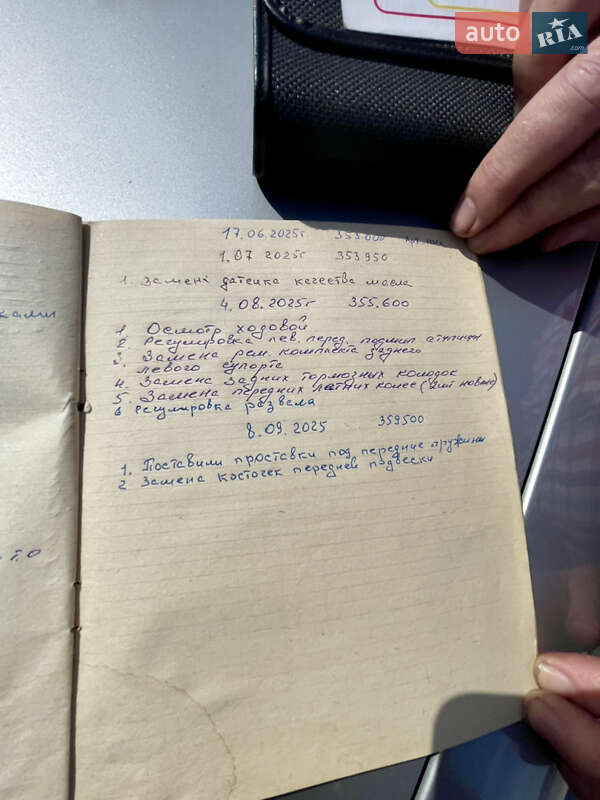 auto RIA .com
17.06.2025г 353000
1.07 2025г 353950
1. Замена датчика качества масла
4.08.2025г 355.600
1. Осмотр ходовой
2. Регулировка лев. перед.
3. Замена рем. комплекта заднего
левого супорта
4. Замена Задних тормозных колодок
5. Замена передних летних колес (2шт новые)
6 Регулировка развела
8.09.2025 359500
1. Поставили проставки под передние пружины
2 Замена косточек передней подвески
ками
Т.О